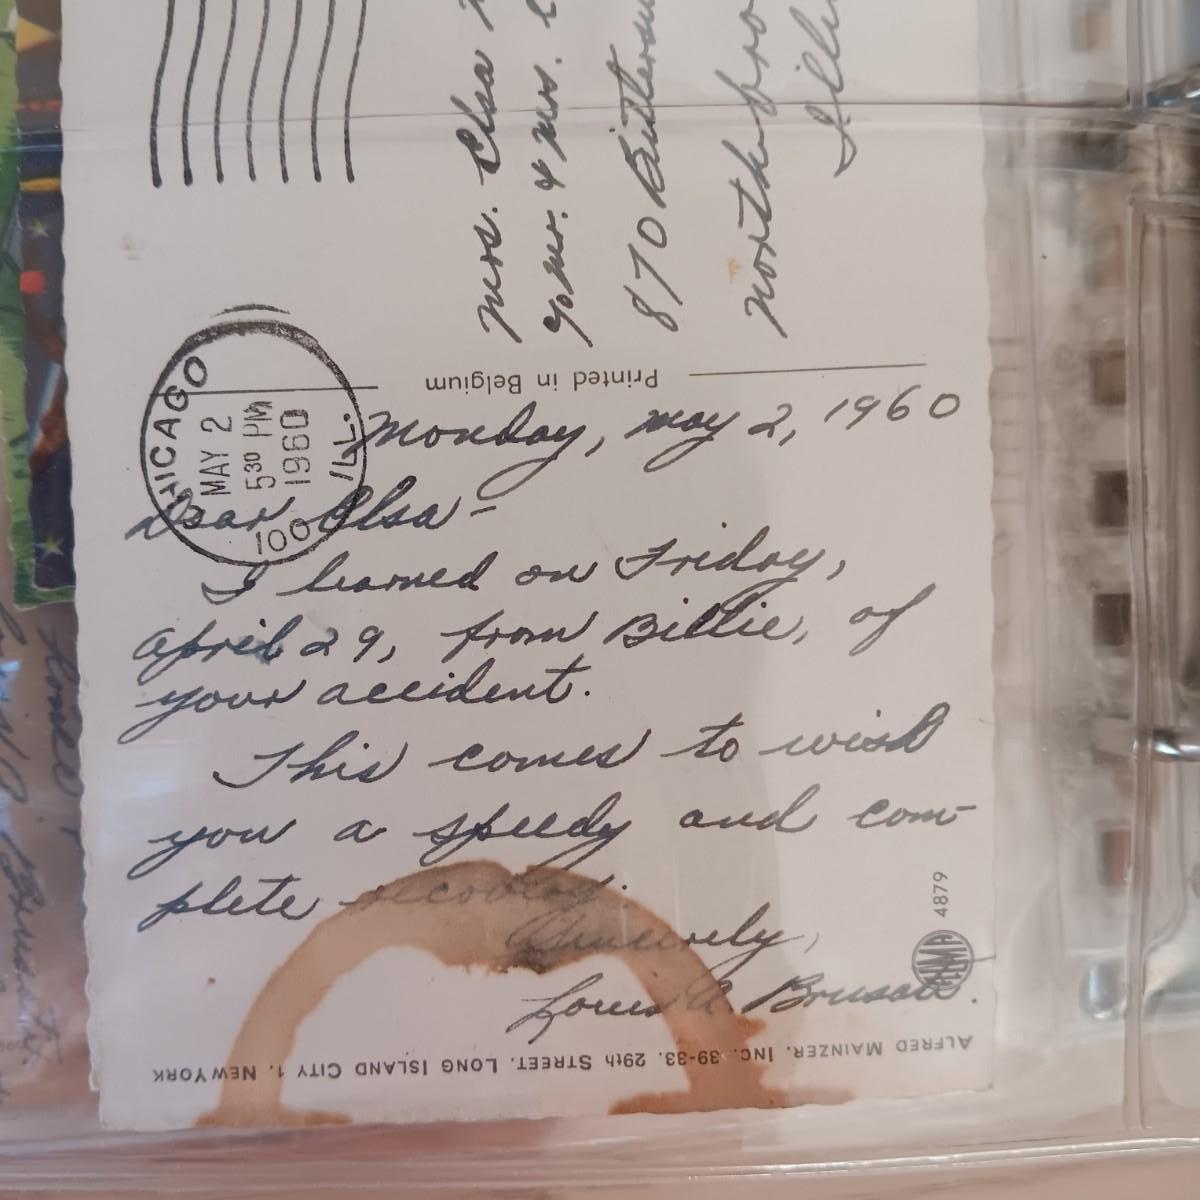 Mrs. Elsa
% Mr. & Mrs.
870
Northbroo
Illi
Printed in Belgium
CHICAGO
ILL.
MAY 2
5 30 PM
1960
100
Monday, May 2, 1960
Dear Elsa -
I learned on Friday,
April 29, from Billie, of
your accident.
This comes to wish
you a speedy and com-
plete recovery.
Sincerely,
Louis A.
4879
ALFRED MAINZER, INC. 39-33, 29th STREET. LONG ISLAND CITY 1, NEW YORK